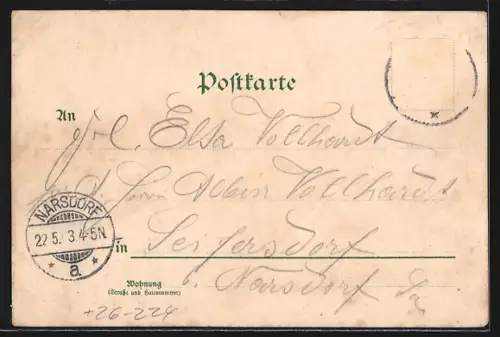 Postkarte
An Frl. Elsa Vollhardt
Herrn Albin Vollhardt
NARSDORF
22.5. 3.4-5N
* a. *
in Seifersdorf
b. Narsdorf Sa
Wohnung
(Straße und Hausnummer)
+26-224